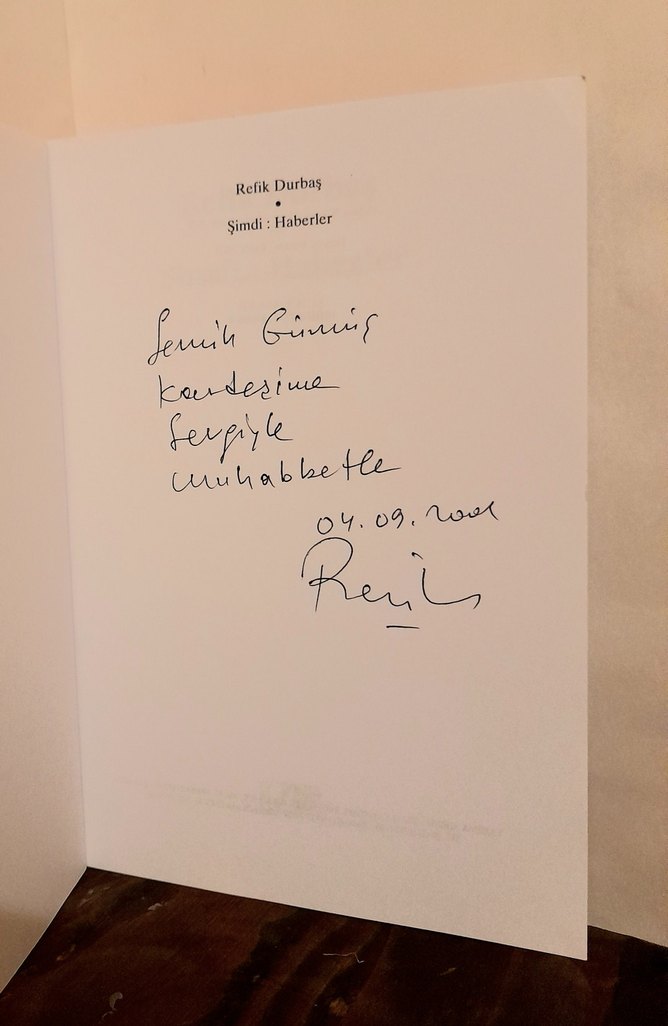 Refik Durbaş
•
Şimdi : Haberler
Semih Gümüş
kardeşime
Sevgiyle
muhabbetle
04.09.2001
Refik